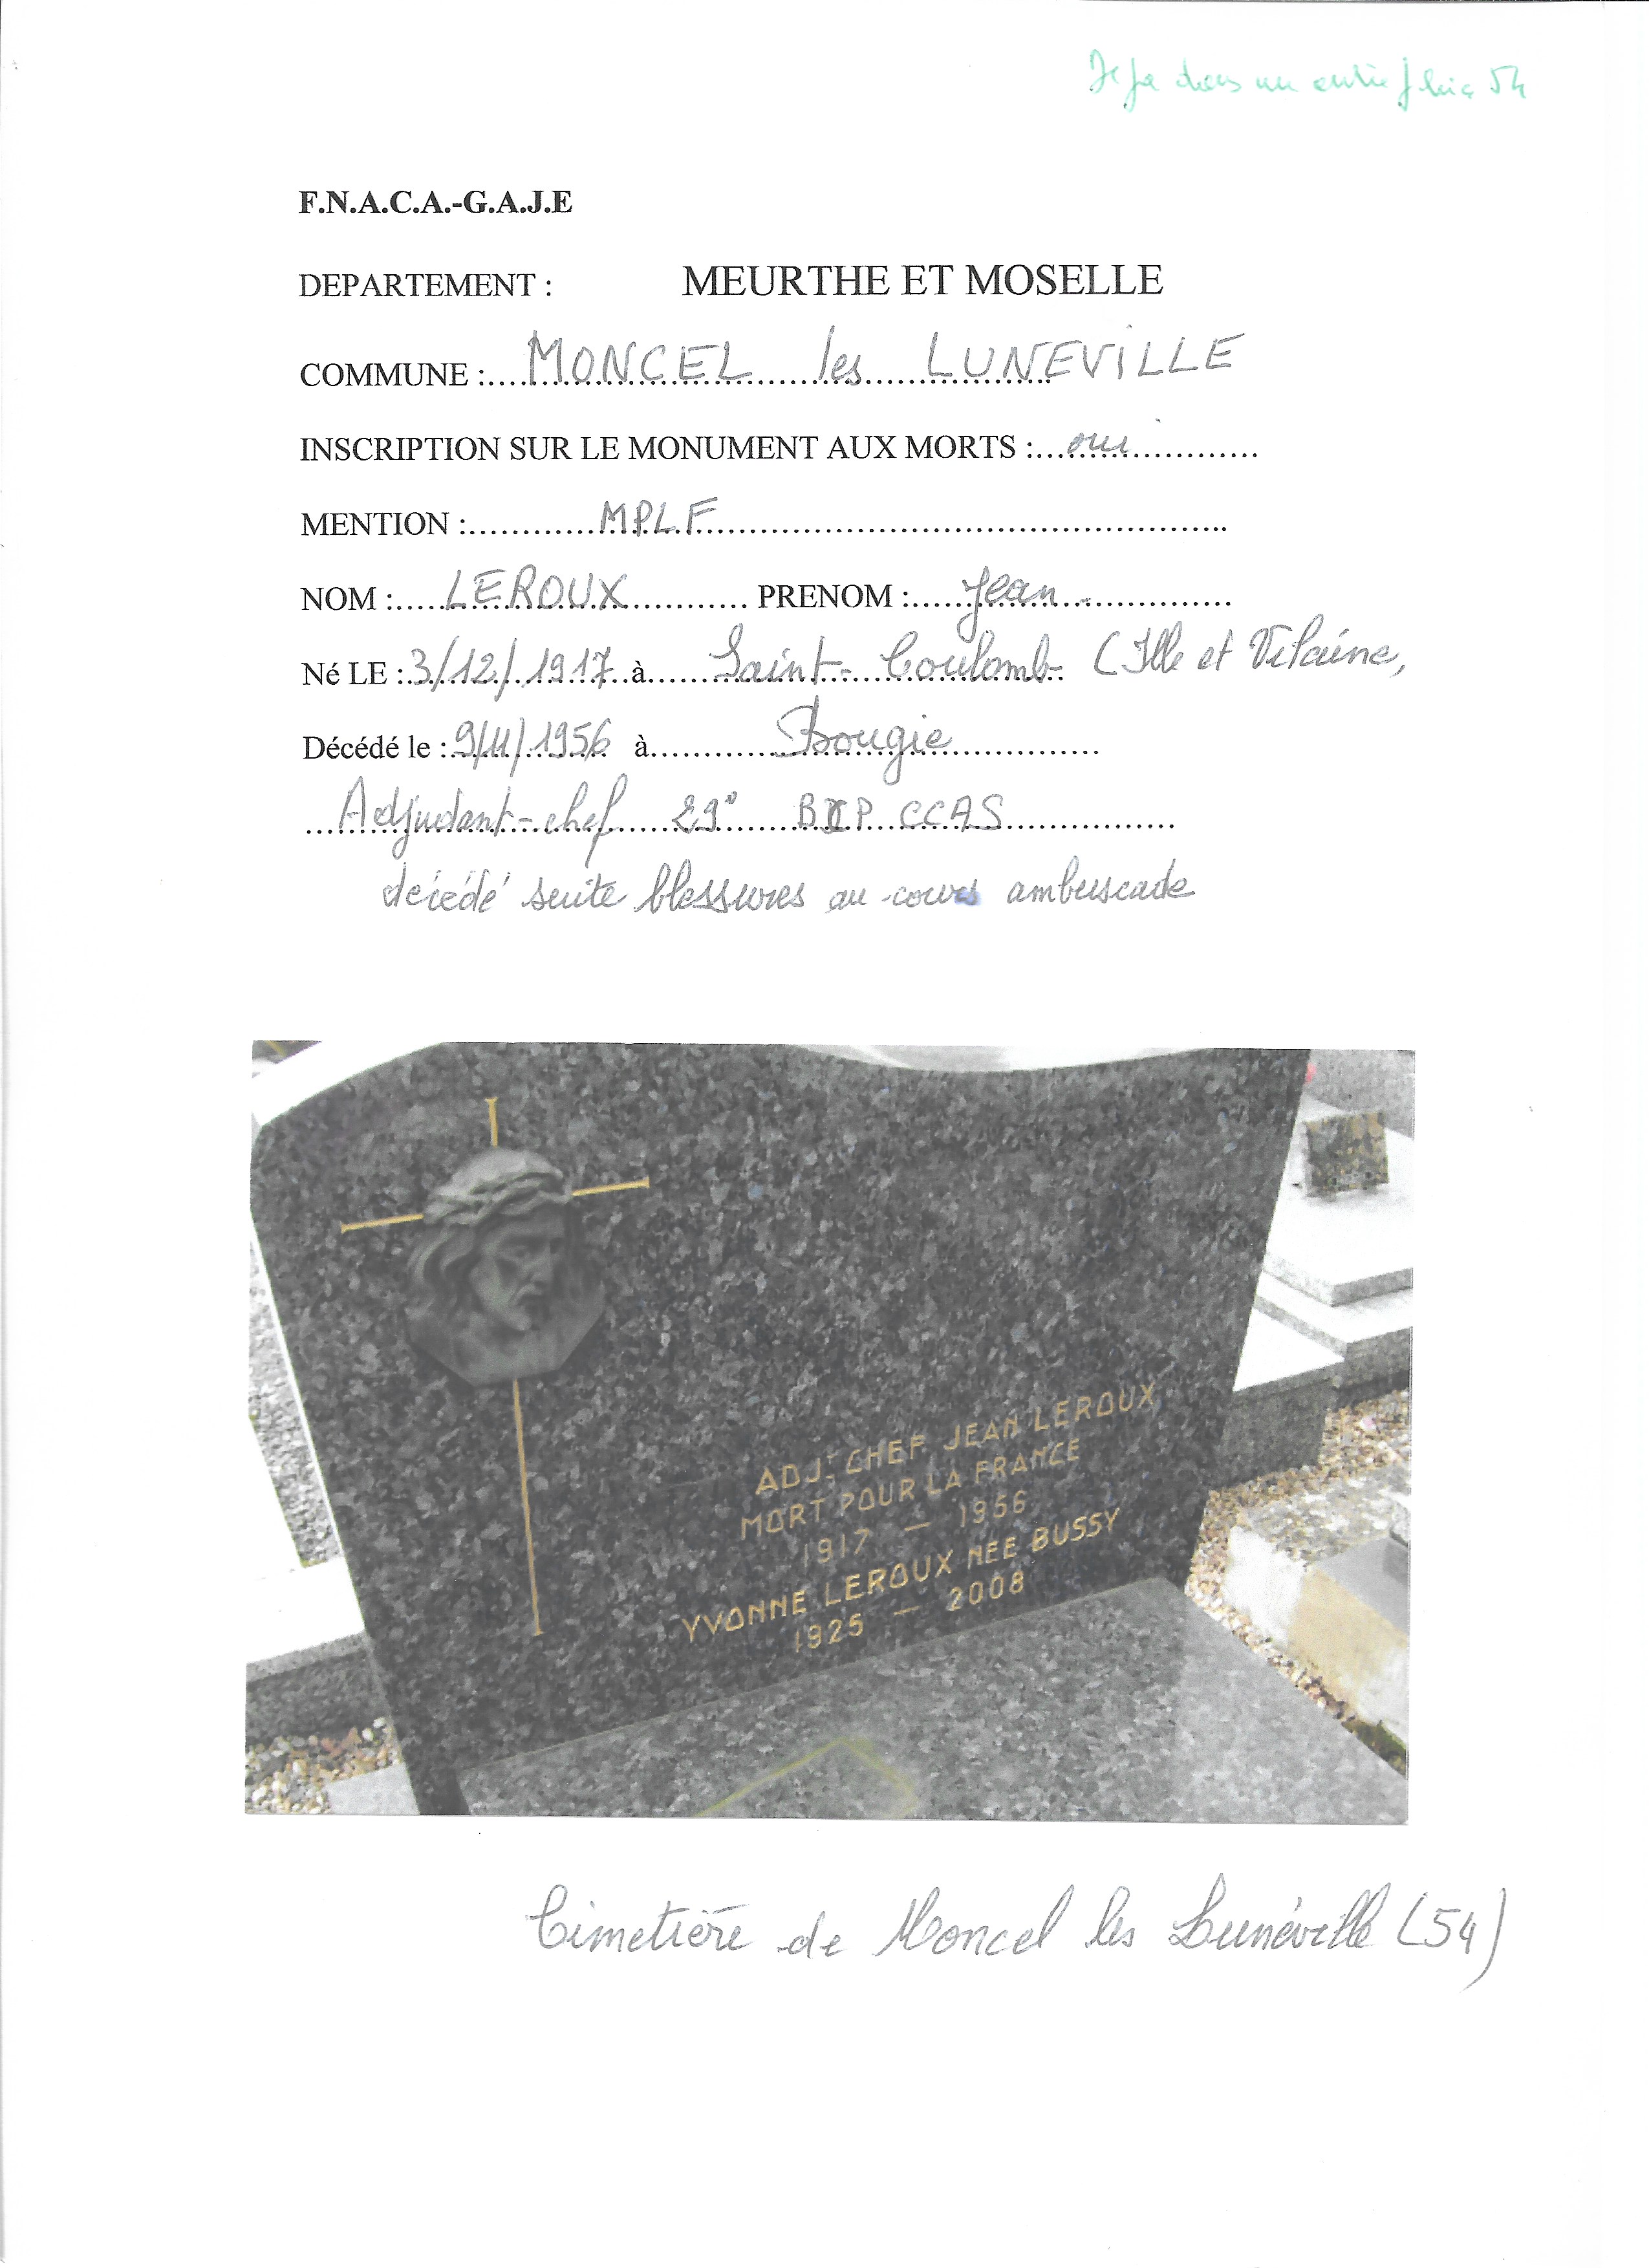 dans un
F.N.A.C.A.-G.A.J.E
DEPARTEMENT : MEURTHE ET MOSELLE
COMMUNE :.... MONCEL les LUNEVILLE
INSCRIPTION SUR LE MONUMENT AUX MORTS :... oui
MENTION :........... MPLF
NOM :..... LEROUX PRENOM :..... Jean
Né LE : 3/12/1917 à...... Saint-Coulomb (Ille et Vilaine,
Décédé le : 9/11/1956 à............ Bougie
Adjudant-chef 29° CCAS
décédé suite blessures au cours ambuscade
ADJT CHEF JEAN LEROUX
MORT POUR LA FRANCE
1917 – 1956
YVONNE LEROUX NEE BUSSY
1925 – 2008
Cimetière de Moncel les Lunéville (54)